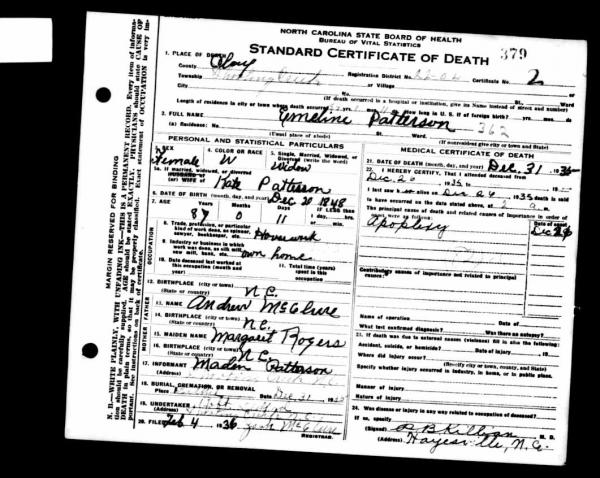 NORTH CAROLINA STATE BOARD OF HEALTH
BUREAU OF VITAL STATISTICS
STANDARD CERTIFICATE OF DEATH 379
1. PLACE OF DEATH
County Clay Registration District No. Certificate No. 2
Township or Village
City No. St. Ward
(If death occurred in a hospital or institution, give its Name instead of street and number)
Length of residence in city or town where death occurred yrs. mos. ds. How long in U. S. if of foreign birth? yrs. mos. ds.
2. FULL NAME Emeline Patterson
(a) Residence: No. St. Ward 362
(Usual place of abode) (If nonresident give city or town and State)
PERSONAL AND STATISTICAL PARTICULARS
3. SEX Female
4. COLOR OR RACE W
5. Single, Married, Widowed, or Divorced (write the word) Widow
5a. If married, widowed, or divorced
HUSBAND of Patterson
6. DATE OF BIRTH (month, day, and year) Dec 20 1848
7. AGE 87 0 11 If LESS than 1 day, hrs. min.
OCCUPATION
8. Trade, profession, or particular kind of work done, as spinner, sawyer, bookkeeper, etc. Housework
9. Industry or business in which work was done, as silk mill, saw mill, bank, etc. own home
10. Date deceased last worked at this occupation (month and year)
11. Total time (years) spent in this occupation
12. BIRTHPLACE (city or town) N.C.
(State or country)
FATHER
13. NAME Andrew McClure
14. BIRTHPLACE (city or town) N.C.
(State or country)
MOTHER
15. MAIDEN NAME Margaret Rogers
16. BIRTHPLACE (city or town) N.C.
(State or country)
17. INFORMANT Maden Patterson
(Address)
18. BURIAL, CREMATION, OR REMOVAL
Place Date Dec 31 1935
19. UNDERTAKER
(Address)
20. FILED Feb 4 1936 McClure
REGISTRAR.
MEDICAL CERTIFICATE OF DEATH
21. DATE OF DEATH (month, day, and year) Dec. 31 1935
22. I HEREBY CERTIFY, That I attended deceased from
Dec. 20 1935 to 19
I last saw h alive on Dec 24 1935 death is said
to have occurred on the date stated above, at m.
The principal cause of death and related causes of importance in order of onset were as follows:
Apoplexy Dec
Contributory causes of importance not related to principal causes:
Name of operation Date of
What test confirmed diagnosis? Was there an autopsy?
23. If death was due to external causes (violence) fill in also the following:
Accident, suicide, or homicide? Date of injury 19
Where did injury occur?
(Specify city or town, county, and State)
Specify whether injury occurred in industry, in home, or in public place.
Manner of injury
Nature of injury
24. Was disease or injury in any way related to occupation of deceased?
If so, specify
(Signed) B Killian M. D.
(Address) Hayesville, N.C.
MARGIN RESERVED FOR BINDING
N. B.—WRITE PLAINLY, WITH UNFADING INK—THIS IS A PERMANENT RECORD. Every item of information should be carefully supplied. AGE should be stated EXACTLY. PHYSICIANS should state CAUSE OF DEATH in plain terms, so that it may be properly classified. Exact statement of OCCUPATION is very important. See instructions on back of certificate.